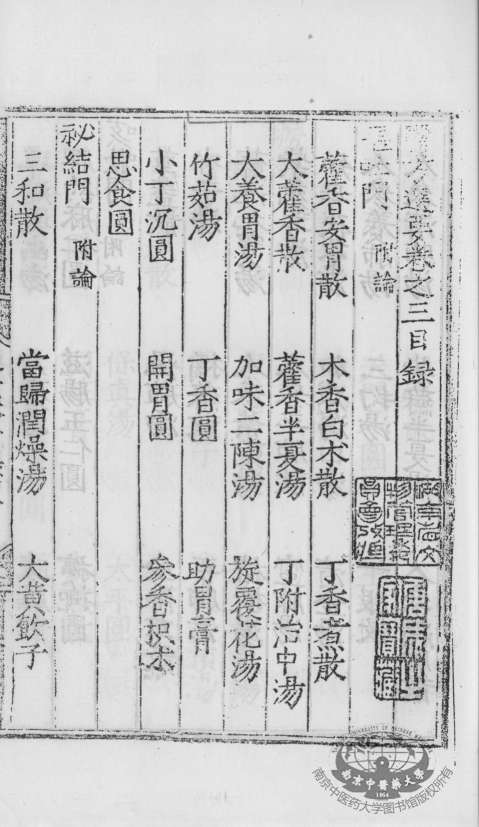 選要卷之三目錄
門 附論
藿香安胃散 木香白术散 丁香煮散
大藿香散 藿香半夏湯 丁附治中湯
大養胃湯 加味二陳湯 旋覆花湯
竹茹湯 丁香圓 助胃膏
小丁沉圓 開胃圓 參香枳术
思食圓
秘結門 附論
三和散 當歸潤燥湯 大黃飲子
南京中醫藥大學
1954
南京中医药大学图书馆版权所有